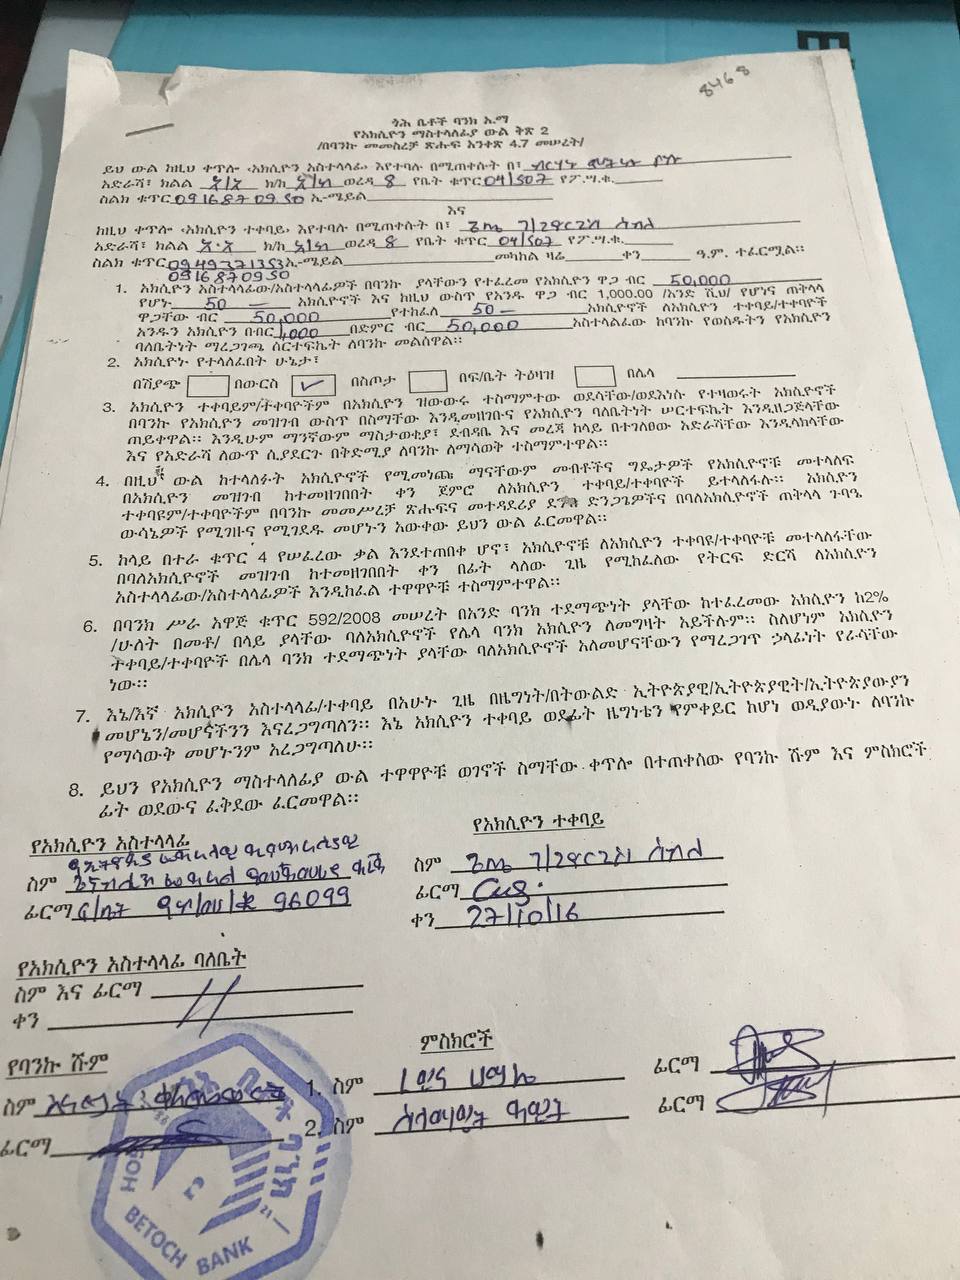 8468
ጎሕ ቤቶች ባንክ አ.ማ
የአክሲዮን ማስተላለፊያ ውል ቅጽ 2
/በባንኩ መመስረቻ ጽሑፍ አንቀጽ 4.7 መሠረት/
ይህ ውል ከዚህ ቀጥሎ ‹አክሲዮን አስተላላፊ› እየተባሉ በሚጠቀሱት በ፣
አድራሻ፣ ክልል አ/አ ክ/ከ አ/ቃ ወረዳ 8 የቤት ቁጥር 04/507 የፖ.ሣ.ቁ.
ስልክ ቁጥር 0916870950 ኢ-ሜይል
እና
ከዚህ ቀጥሎ ‹አክሲዮን ተቀባይ› እየተባሉ በሚጠቀሱት በ፣ ሄኖ ገ/ጊዮርጊስ
አድራሻ፣ ክልል አ.አ ክ/ከ አ/ቃ ወረዳ 8 የቤት ቁጥር 04/507 የፖ.ሣ.ቁ.
ስልክ ቁጥር 0949371353 ኢ-ሜይል መካከል ዛሬ ቀን ዓ.ም. ተፈርሟል።
0916870950
1. አክሲዮን አስተላላፊው/አስተላላፊዎች በባንኩ ያላቸውን የተፈረመ የአክሲዮን ዋጋ ብር 50,000
የሆነ 50 – አክሲዮኖች እና ከዚህ ውስጥ የአንዱ ዋጋ ብር 1,000.00 /አንድ ሺህ/ የሆነና ጠቅላላ
ዋጋቸው ብር 50,000 የተከፈለ 50 – አክሲዮኖች ለአክሲዮን ተቀባይ/ተቀባዮች
አንዱን አክሲዮን በብር 1,000 በድምር ብር 50,000 አስተላልፈው ከባንኩ የወሰዱትን የአክሲዮን
ባለቤትነት ማረጋገጫ ሰርተፍኬት ለባንኩ መልሰዋል።
2. አክሲዮኑ የተላለፈበት ሁኔታ፣
በሽያጭ በውርስ ✓ በስጦታ በፍ/ቤት ትዕዛዝ በሌላ
3. አክሲዮን ተቀባይም/ተቀባዮችም በአክሲዮን ዝውውሩ ተስማምተው ወደሳቸው/ወደእነሱ የተዛወሩት አክሲዮኖች
በባንኩ የአክሲዮን መዝገብ ውስጥ በስማቸው እንዲመዘገቡና የአክሲዮን ባለቤትነት ሠርተፍኬት እንዲዘጋጅላቸው
ጠይቀዋል። እንዲሁም ማንኛውም ማስታወቂያ፣ ደብዳቤ እና መረጃ ከላይ በተገለፀው አድራሻቸው እንዲላክላቸው
እና የአድራሻ ለውጥ ሲያደርጉ በቅድሚያ ለባንኩ ለማሳወቅ ተስማምተዋል።
4. በዚህ ውል ከተላለፉት አክሲዮኖች የሚመነጩ ማናቸውም መብቶችና ግዴታዎች የአክሲዮኖቹ መተላለፍ
በአክሲዮን መዝገብ ከተመዘገበበት ቀን ጀምሮ ለአክሲዮን ተቀባይ/ተቀባዮች ይተላለፋሉ። አክሲዮን
ተቀባዩም/ተቀባዮችም በባንኩ መመሥረቻ ጽሑፍና መተዳደሪያ ደንብ ድንጋጌዎችና በባለአክሲዮኖች ጠቅላላ ጉባዔ
ውሳኔዎች የሚገዙና የሚገደዱ መሆኑን አውቀው ይህን ውል ፈርመዋል።
5. ከላይ በተራ ቁጥር 4 የሠፈረው ቃል እንደተጠበቀ ሆኖ፣ አክሲዮኖቹ ለአክሲዮን ተቀባዩ/ተቀባዮቹ መተላለፋቸው
በባለአክሲዮኖች መዝገብ ከተመዘገበበት ቀን በፊት ላለው ጊዜ የሚከፈለው የትርፍ ድርሻ ለአክሲዮን
አስተላላፊው/አስተላላፊዎች እንዲከፈል ተዋዋዮቹ ተስማምተዋል።
6. በባንክ ሥራ አዋጅ ቁጥር 592/2008 መሠረት በአንድ ባንክ ተደማጭነት ያላቸው ከተፈረመው አክሲዮን ከ2%
/ሁለት በመቶ/ በላይ ያላቸው ባለአክሲዮኖች የሌላ ባንክ አክሲዮን ለመግዛት አይችሉም። ስለሆነም አክሲዮን
ተቀባይ/ተቀባዮች በሌላ ባንክ ተደማጭነት ያላቸው ባለአክሲዮኖች አለመሆናቸውን የማረጋገጥ ኃላፊነት የራሳቸው
ነው።
7. እኔ/እኛ አክሲዮን አስተላላፊ/ተቀባይ በአሁኑ ጊዜ በዜግነት/በትውልድ ኢትዮጵያዊ/ኢትዮጵያዊት/ኢትዮጵያውያን
መሆኔን/መሆናችንን እናረጋግጣለን። እኔ አክሲዮን ተቀባይ ወደፊት ዜግነቴን የምቀይር ከሆነ ወዲያውኑ ለባንኩ
የማሳውቅ መሆኑንም አረጋግጣለሁ።
8. ይህን የአክሲዮን ማስተላለፊያ ውል ተዋዋዮቹ ወገኖች ስማቸው ቀጥሎ በተጠቀሰው የባንኩ ሹም እና ምስክሮች
ፊት ወደውና ፈቅደው ፈርመዋል።
የአክሲዮን አስተላላፊ
ስም
ፊርማ 96099
የአክሲዮን ተቀባይ
ስም ሄኖ ገ/ጊዮርጊስ
ፊርማ
ቀን 27/10/16
የአክሲዮን አስተላላፊ ባለቤት
ስም እና ፊርማ
ቀን
የባንኩ ሹም
ስም
ፊርማ
ምስክሮች
1. ስም ፊርማ
2. ስም ፊርማ
ጎሕ ቤቶች ባንክ
BETOCH BANK